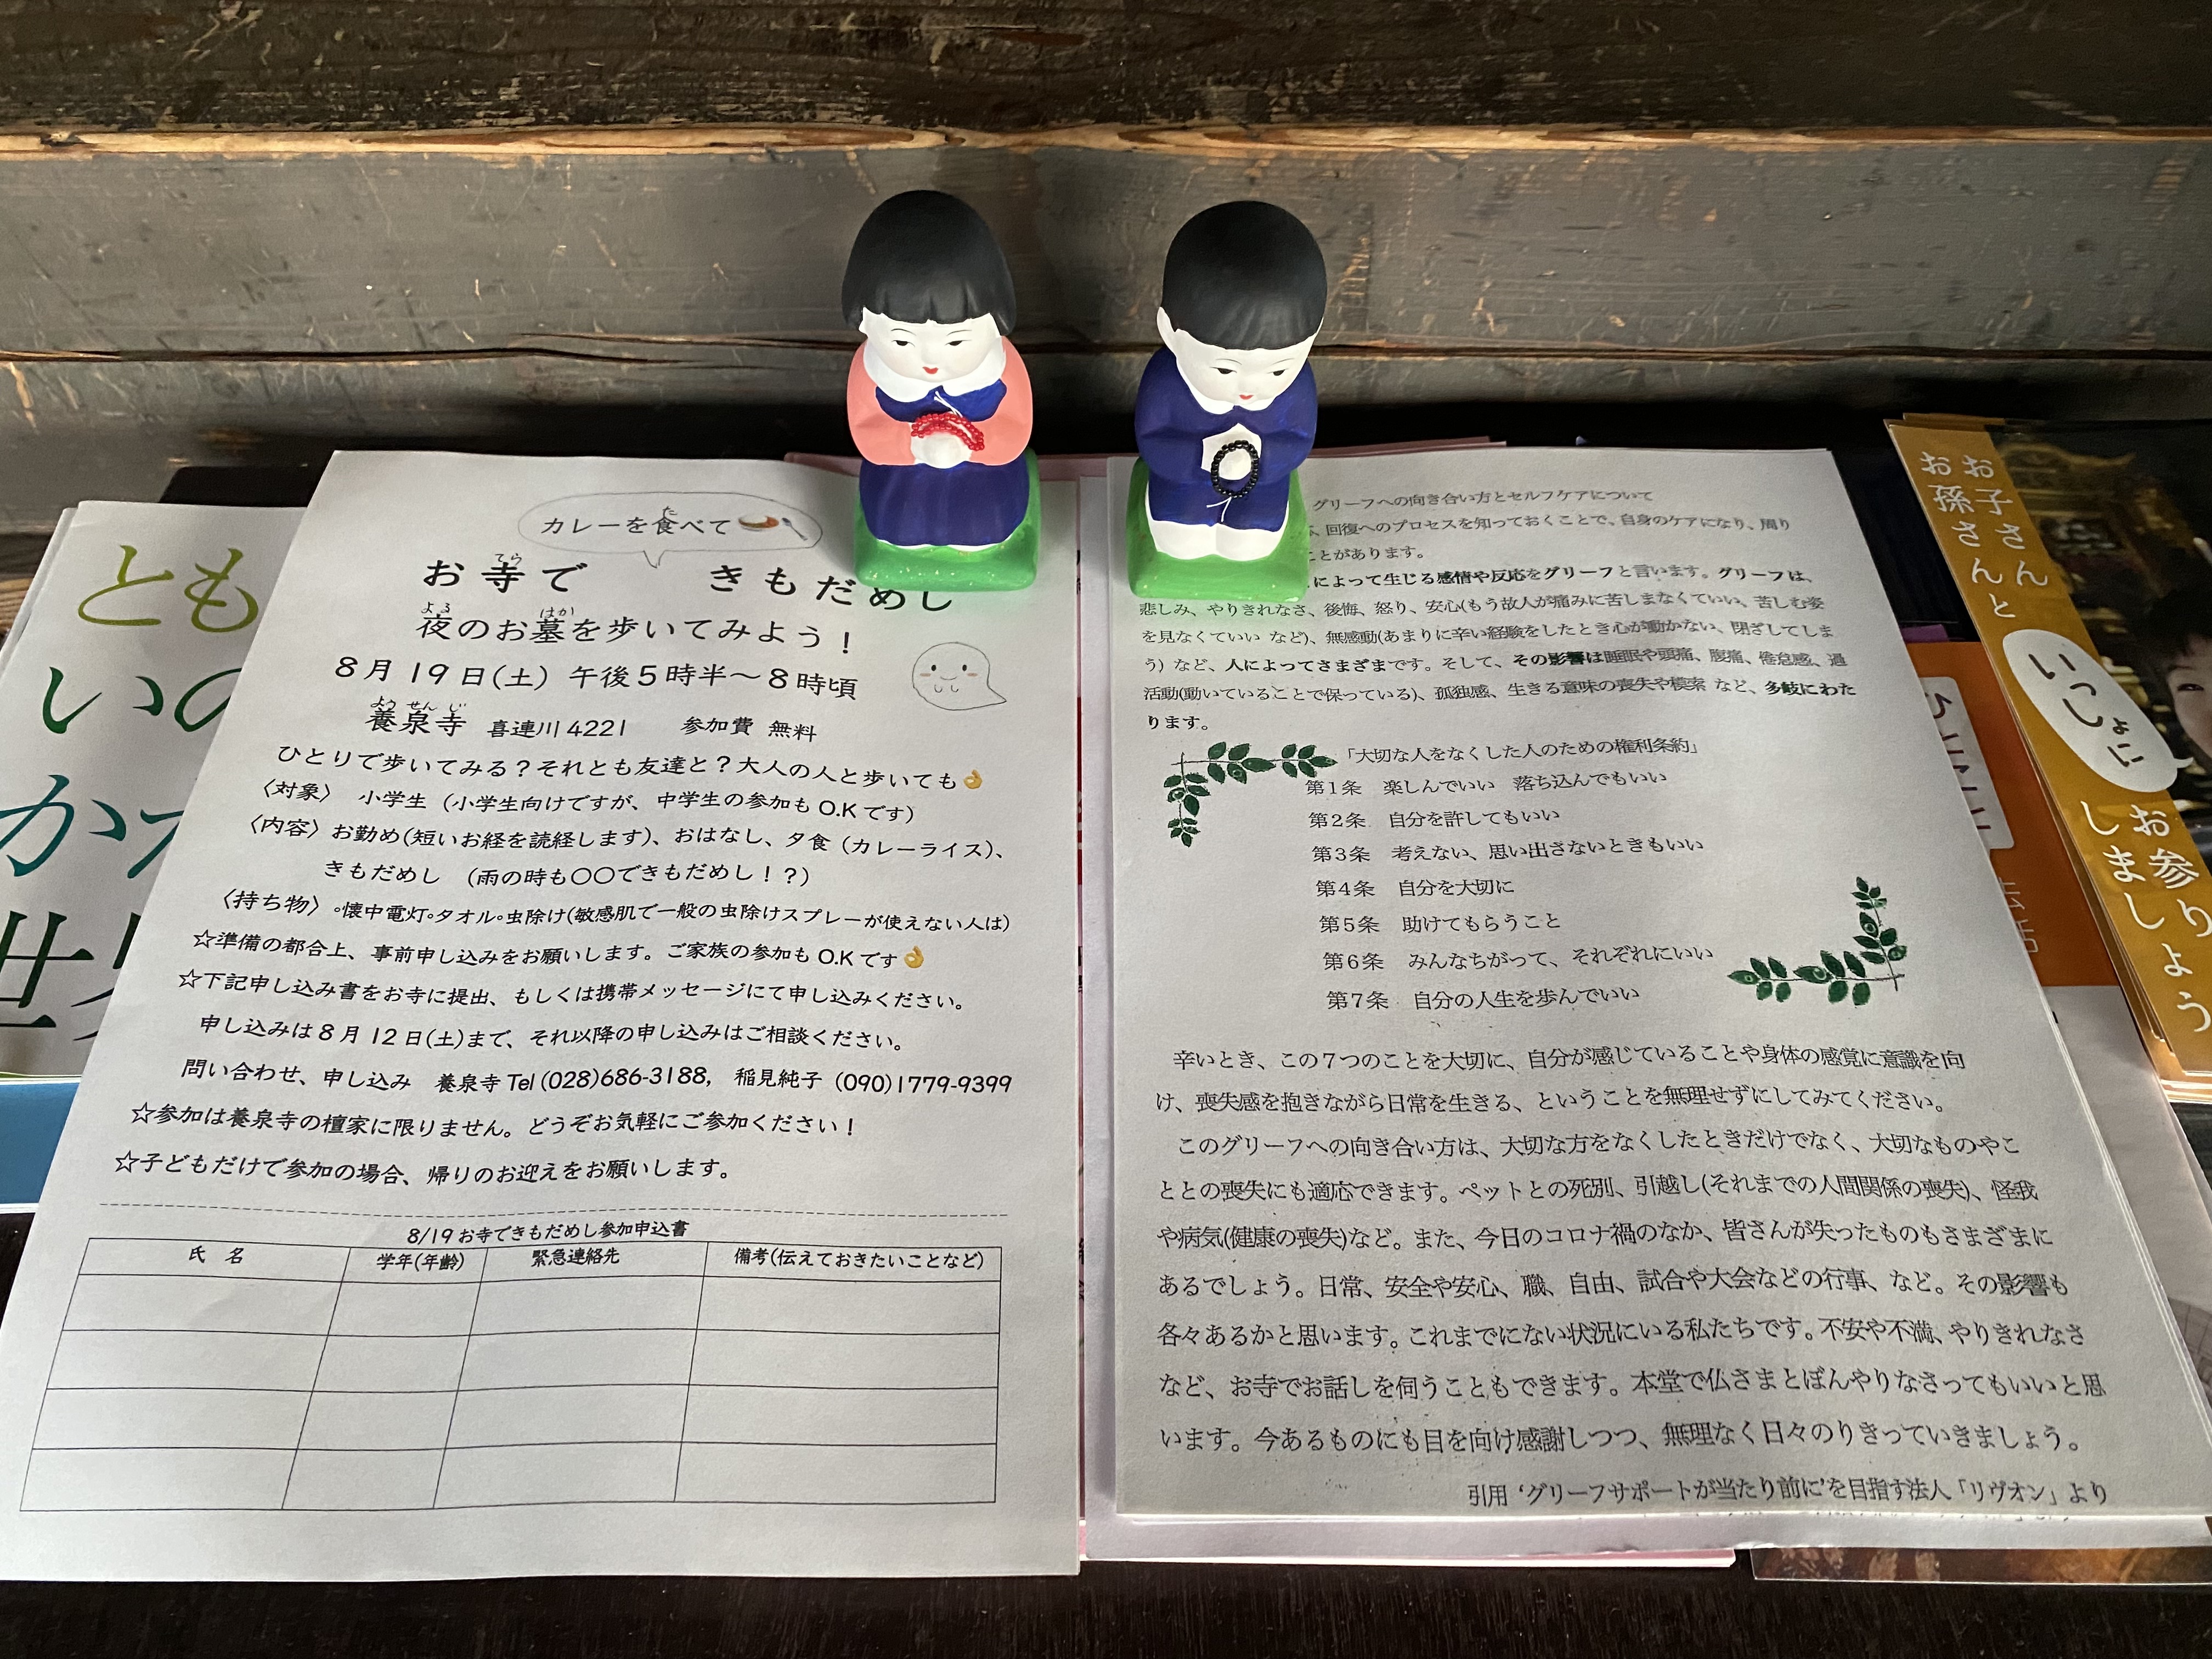 カレーを食べて
お寺で きもだめし
夜のお墓を歩いてみよう！
8月19日(土) 午後5時半～8時頃
養泉寺 喜連川4221 参加費 無料
ひとりで歩いてみる？それとも友達と？大人の人と歩いても👌
〈対象〉 小学生（小学生向けですが、中学生の参加もO.Kです）
〈内容〉お勤め(短いお経を読経します)、おはなし、夕食（カレーライス）、
きもだめし （雨の時も〇〇できもだめし！？）
〈持ち物〉◦懐中電灯◦タオル◦虫除け(敏感肌で一般の虫除けスプレーが使えない人は)
☆準備の都合上、事前申し込みをお願いします。ご家族の参加もO.Kです👌
☆下記申し込み書をお寺に提出、もしくは携帯メッセージにて申し込みください。
申し込みは8月12日(土)まで、それ以降の申し込みはご相談ください。
問い合わせ、申し込み 養泉寺Tel(028)686-3188, 稲見純子 (090)1779-9399
☆参加は養泉寺の檀家に限りません。どうぞお気軽にご参加ください！
☆子どもだけで参加の場合、帰りのお迎えをお願いします。
8/19お寺できもだめし参加申込書
氏 名 学年(年齢) 緊急連絡先 備考(伝えておきたいことなど)
グリーフへの向き合い方とセルフケアについて
、回復へのプロセスを知っておくことで、自身のケアになり、周り
ことがあります。
によって生じる感情や反応をグリーフと言います。グリーフは、
悲しみ、やりきれなさ、後悔、怒り、安心(もう故人が痛みに苦しまなくていい、苦しむ姿
を見なくていい など)、無感動(あまりに辛い経験をしたとき心が動かない、閉ざしてしま
う) など、人によってさまざまです。そして、その影響は睡眠や頭痛、腹痛、倦怠感、過
活動(動いていることで保っている)、孤独感、生きる意味の喪失や模索 など、多岐にわた
ります。
「大切な人をなくした人のための権利条約」
第1条 楽しんでいい 落ち込んでもいい
第2条 自分を許してもいい
第3条 考えない、思い出さないときもいい
第4条 自分を大切に
第5条 助けてもらうこと
第6条 みんなちがって、それぞれにいい
第7条 自分の人生を歩んでいい
辛いとき、この7つのことを大切に、自分が感じていることや身体の感覚に意識を向
け、喪失感を抱きながら日常を生きる、ということを無理せずにしてみてください。
このグリーフへの向き合い方は、大切な方をなくしたときだけでなく、大切なものやこ
ととの喪失にも適応できます。ペットとの死別、引越し(それまでの人間関係の喪失)、怪我
や病気(健康の喪失)など。また、今日のコロナ禍のなか、皆さんが失ったものもさまざまに
あるでしょう。日常、安全や安心、職、自由、試合や大会などの行事、など。その影響も
各々あるかと思います。これまでにない状況にいる私たちです。不安や不満、やりきれなさ
など、お寺でお話しを伺うこともできます。本堂で仏さまとぼんやりなさってもいいと思
います。今あるものにも目を向け感謝しつつ、無理なく日々のりきっていきましょう。
引用 ‘グリーフサポートが当たり前に’を目指す法人「リヴオン」より
とも
いの
か
世
お子さん
お孫さんと
いっしょに
お参り
しましょう